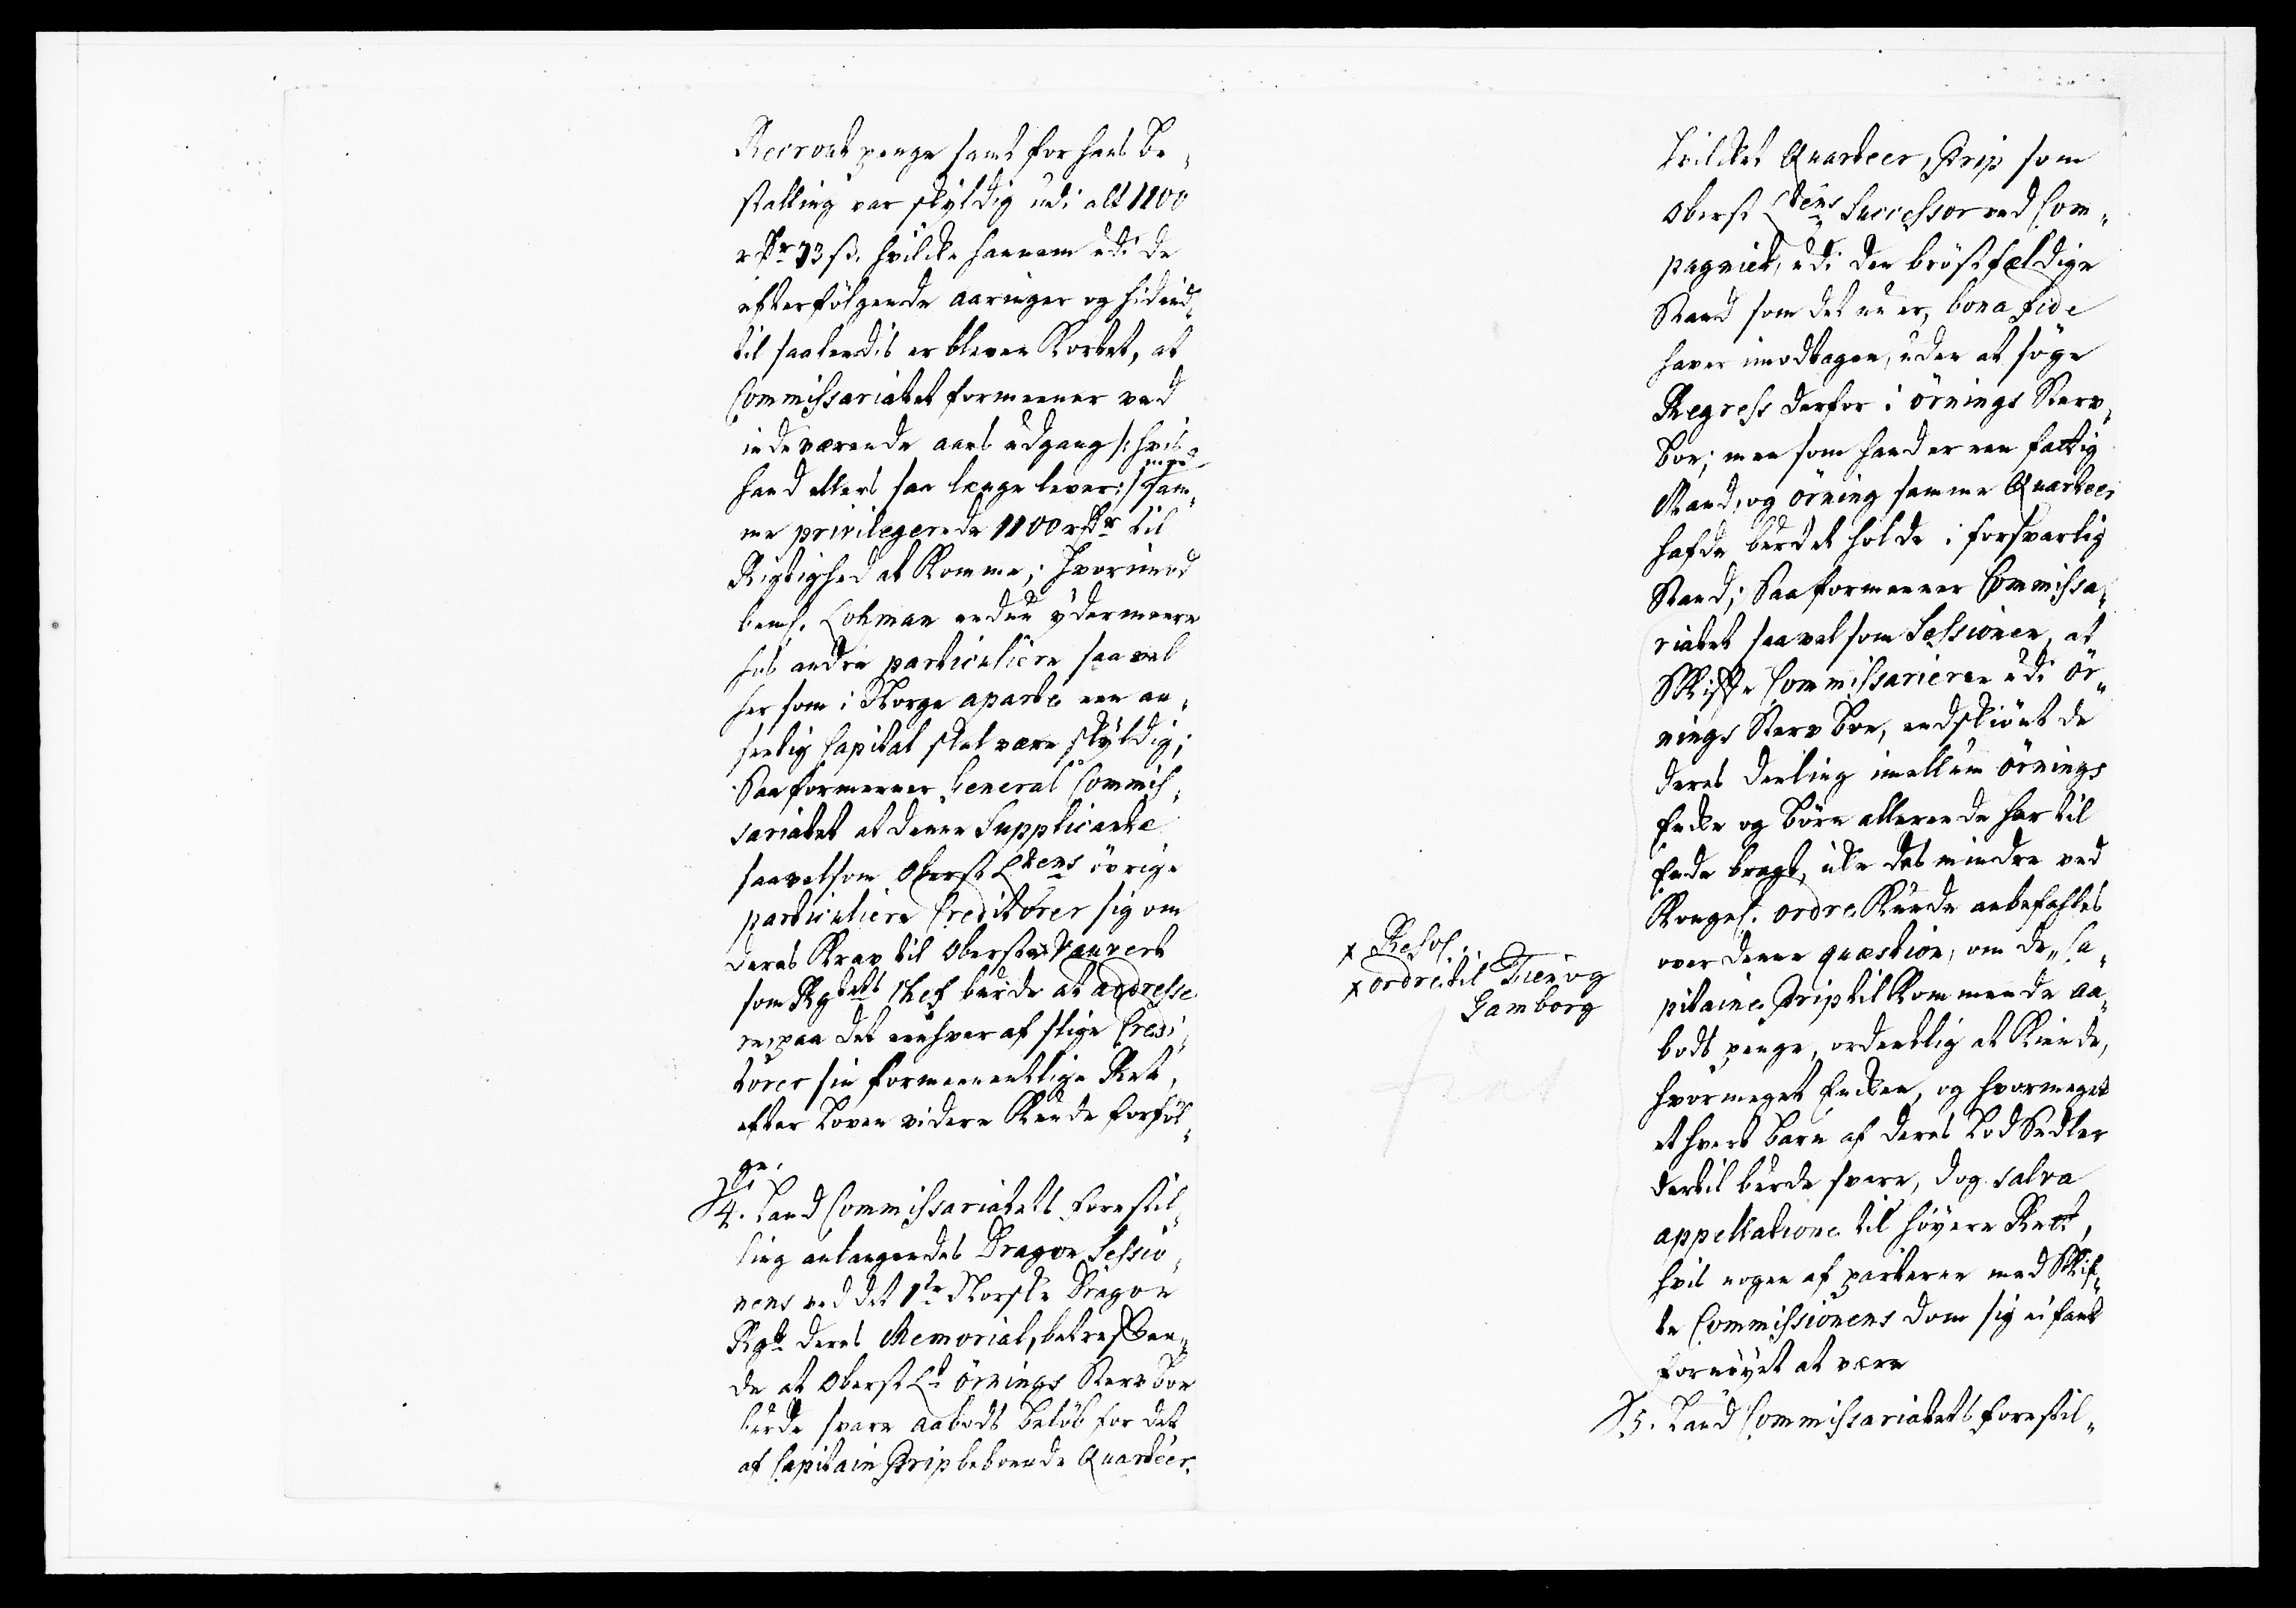 Recrout penge samt for hans be„
stalling var skyldig udi alt 1100
rdr 73 ß. hvilke hannem udi de
efterfölgende aaringer og hidind„
til saaledis er bleven Kortet, at
Commissariatet formeener ved
indeværende aars udgang /: hvis
hand ellers saa længe lever :/ med sam„
me privilegerede 1100 rdr til
Rigtighed at Komme; Hvorimod
bemte. Lohman endnu ydermeere
hos andre particuliere saavel
her som i Norge aparte een an„
seelig Capital skal være skyldig;
Saa formeener General Commis„
sariatet at denne Supplicante
saavelsom Oberst Ltens övrige
particuliere Creditorer sig om
deres Krav til Oberste
som Rgtets Chef burde at addresse„
re, paa det eenhver af slige Credi„
torer sin formeenentlige Ret,
efter Loven videre Kunde forföl„
ge.
4. Land Commissariatets Forestil„
ling anlangendes Dragon Sessio„
nens ved det 1te Norske Dragon
Rgt deres Memorial, betreffen„
de at Oberst Lt Örnings Sterv boe
burde svare Aabods Beløb for det
af Capitain Grip beboende Quarteer.
Hvilket Quarteer, Grip som
Oberst Ltens Successor ved Com„
pagniet, udi den bröstfældige
Stand som det nu er, bona fide
haver imodtagen, uden at söge
Regress derfor i Örnings Sterv„
boe; men som hand er een fattig
Mand, og Örning samme Quarteer
hafde burdet holde i forsvarlig
Stand; Saa formeener Commissa„
riatet saavelsom Sessionen, at
Skifte Commissarierne udi Ör„
nings Sterv boe, endskiönt de
deres Deeling imellum Örnings
Enke og Börn allereede har til
Ende bragt, icke des mindre ved
Kongel. ordre Kunde anbefahles
over denne quæstion, om de „ Ca„
pitaine Grip tilkommende Aa„
bods penge, ordentlig at Kiende,
hvormeget Encken, og hvormeget
et hvert barn af deres Lod Sedler
dertil burde svare, dog salva
appellatione til höyere Rett,
hvis nogen af parterne med Skif„
te Commissionens dom sig ei fant
fornöyet at være
5. Land Commissariatets forestil„
x Resol.
x ordre til
Gamborg